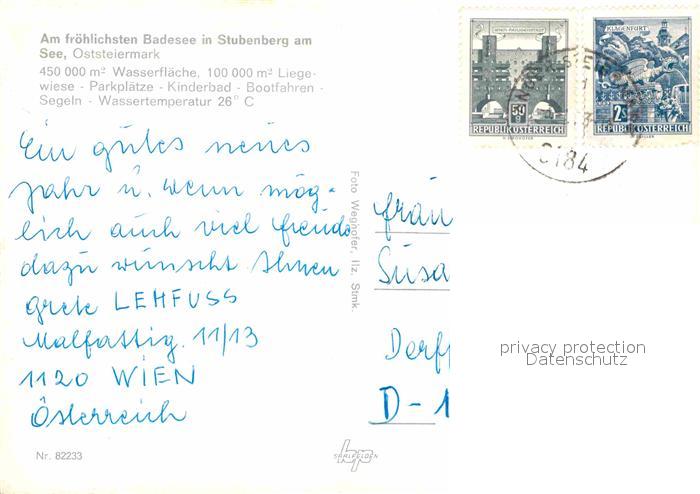 Am fröhlichsten Badesee in Stubenberg am
See, Oststeiermark
450 000 m² Wasserfläche, 100 000 m² Liege-
wiese - Parkplätze - Kinderbad - Bootfahren -
Segeln - Wassertemperatur 26° C
Ein gutes neues
Jahr u. wenn mög-
lich auch viel Freude
dazu wünscht Ihnen
Grete LEHFUSS
Malfattig. 11/13
1120 WIEN
Österreich
Nr. 82233
Foto Weghofer, Ilz, Stmk.
SAALFELDEN
50
REPUBLIK ÖSTERREICH
KLAGENFURT
2S
REPUBLIK ÖSTERREICH
8184
Frau
Susa
Dorf
D-1
privacy protection
Datenschutz